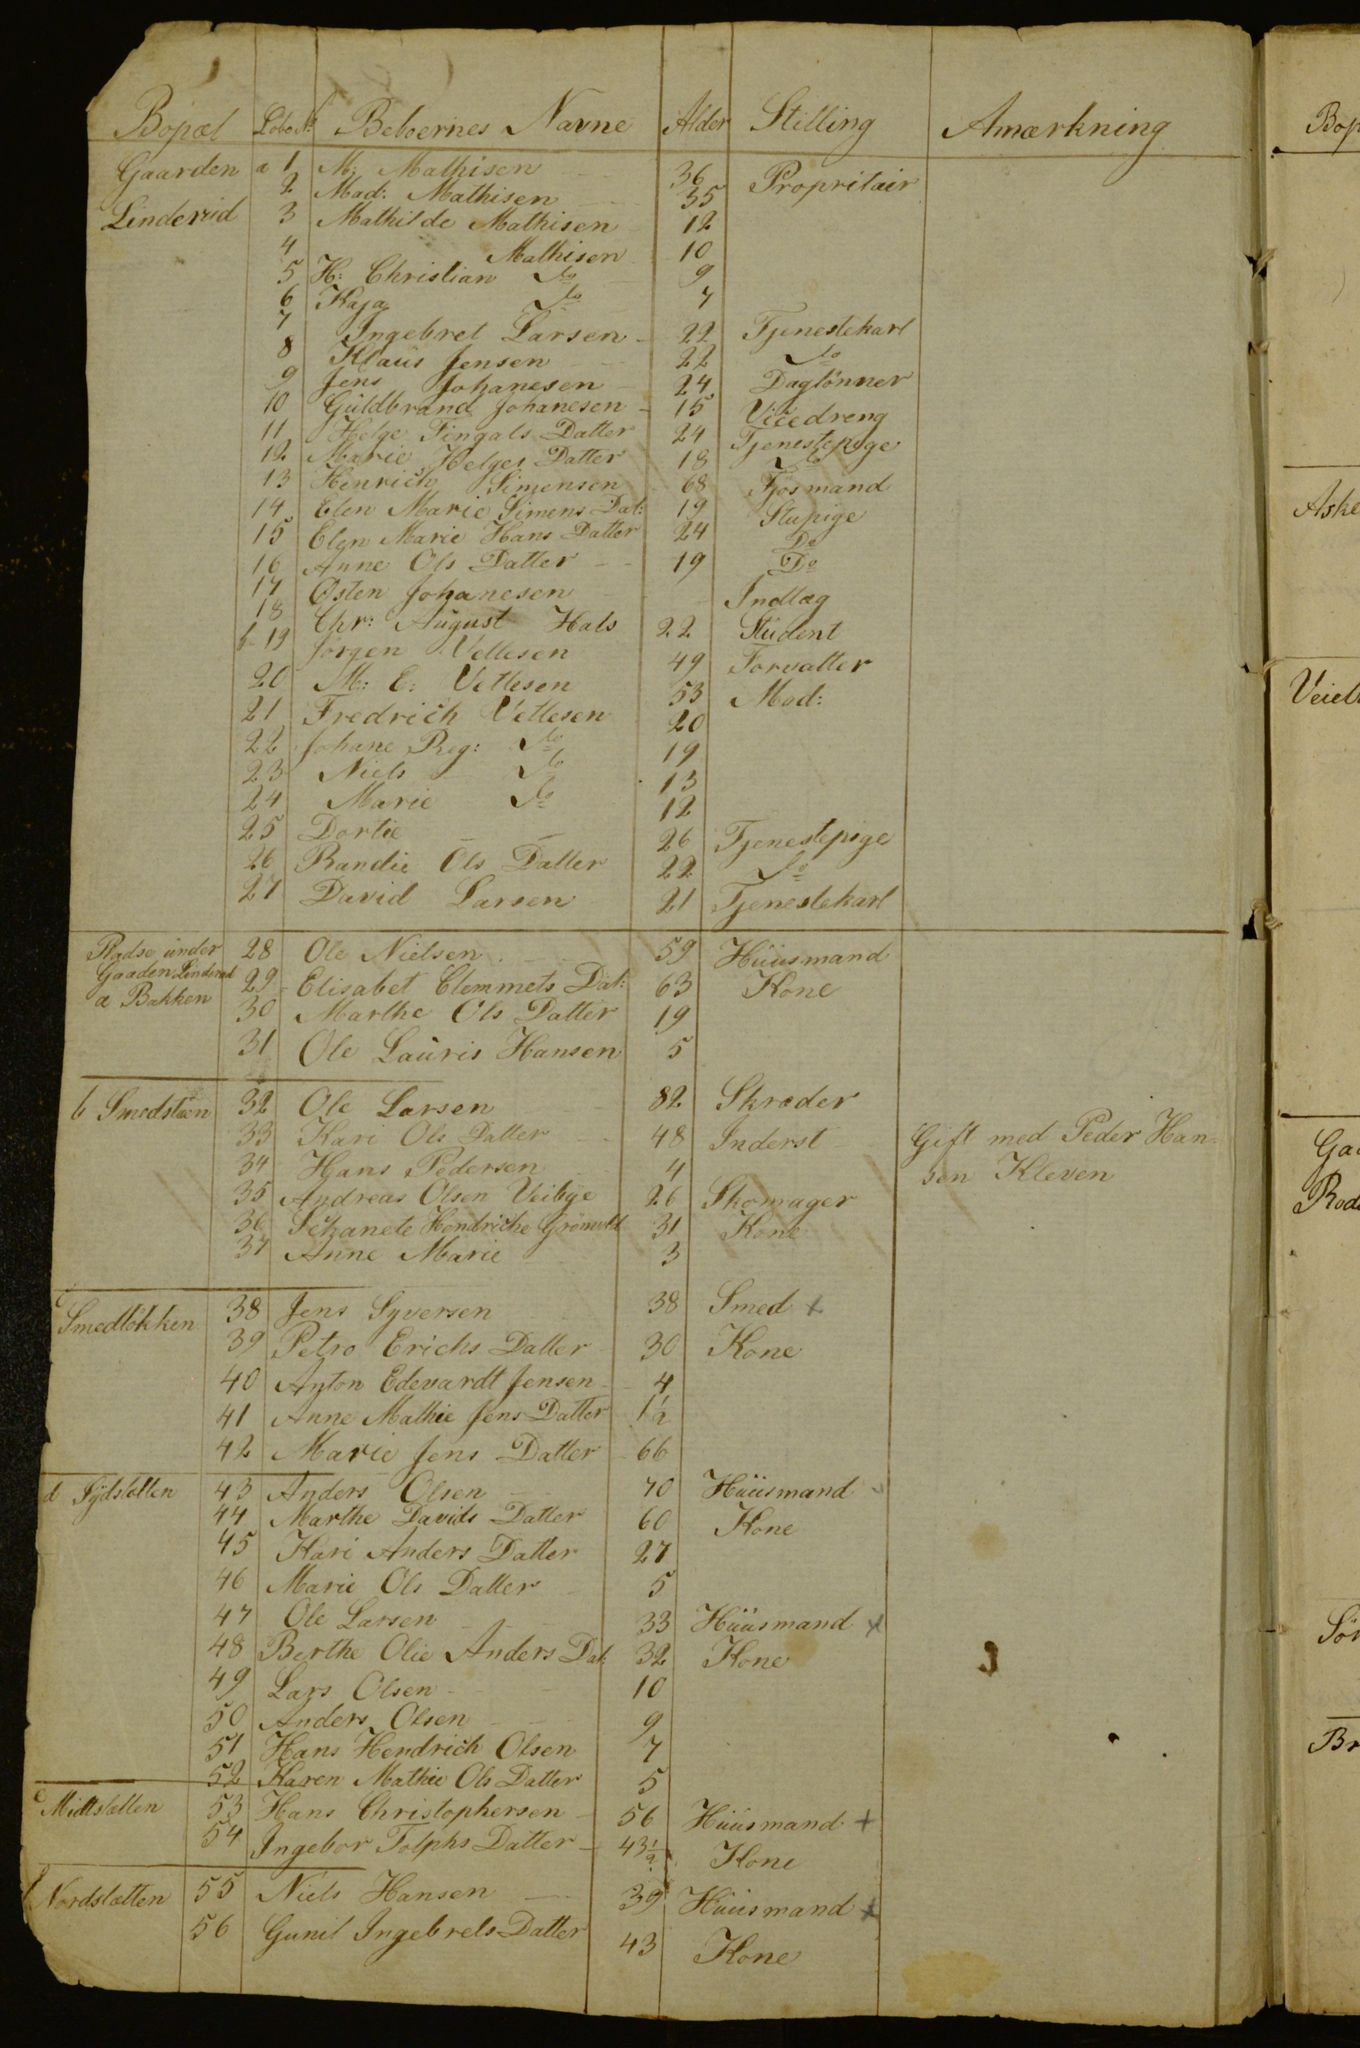 Bopæl Löbe№ Beboernes Navne Alder Stilling Anmærkning
Gaarden a 1 M. Mathisen 36 Propritair
2 Mad: Mathisen 35
Linderud 3 Mathilde Mathisen 12
4 Mathisen 10
5 H: Christian Do 9
6 Kaja Do 7
7 Ingebret Larsen 22 Tjenestekarl
8 Klaus Jensen 22 Do
9 Jens Johanesen 24 Daglönner
10 Guldbrand Johanesen 15 Vicedreng
11 Helge Fingals Datter 24 Tjenestepige
12 Marie Helges Datter 18 Do
13 Henrich Simensen 68 Fjösmand
14 Elen Marie Simens Dat: 19 Stupige
15 Elen Marie Hans Datter 24 Do
16 Anne Ols Datter 19 Do
17 Østen Johanesen Indlæg
18 Chr: August Hals 22 Student
b 19 Jörgen Vetlesen 49 Forvalter
20 M: E: Vetlesen 53 Mad:
21 Fredrich Vetlesen 20
22 Johane Reg: Do 19
23 Niels Do 13
24 Marie Do 12
25 Dortie 26 Tjenestepige
26 Randie Ols Datter 22 Do
27 David Larsen 21 Tjenestekarl
Pladse under 28 Ole Nielsen 59 Huusmand
Gaaden Linderud 29 Elisabet Clemmets Dat: 63 Kone
a Bakken 30 Marthe Ols Datter 19
31 Ole Lauris Hansen 5
b Smedstuen 32 Ole Larsen 82 Skræder
33 Kari Ols Datter 48 Inderst Gift med Peder Han-
34 Hans Pedersen 4 sen Kleven
35 Andreas Olsen Veibye 26 Skomager
36 Hendriche Grönvold 31 Kone
37 Anne Marie 3
c Smedlökken 38 Jens Syversen 38 Smed x
39 Petro Erichs Datter 30 Kone
40 Anton Edevardt Jensen 4
41 Anne Mathie Jens Datter 1½
42 Marie Jens Datter 66
d Sydsletten 43 Anders Olsen 70 Huusmand
44 Marthe Davids Datter 60 Kone
45 Kari Anders Datter 27
46 Marie Ols Datter 5
47 Ole Larsen 33 Huusmand x
48 Berthe Olie Anders Dat: 32 Kone
49 Lars Olsen 10
50 Anders Olsen 9
51 Hans Hendrich Olsen 7
52 Karen Mathie Ols Datter 5
e Midtsletten 53 Hans Christophersen 56 Huusmand +
54 Ingebor Tolphs Datter 43½ Kone
f Nordsletten 55 Niels Hansen 39 Huusmand x
56 Gunil Ingebrets Datter 43 Kone